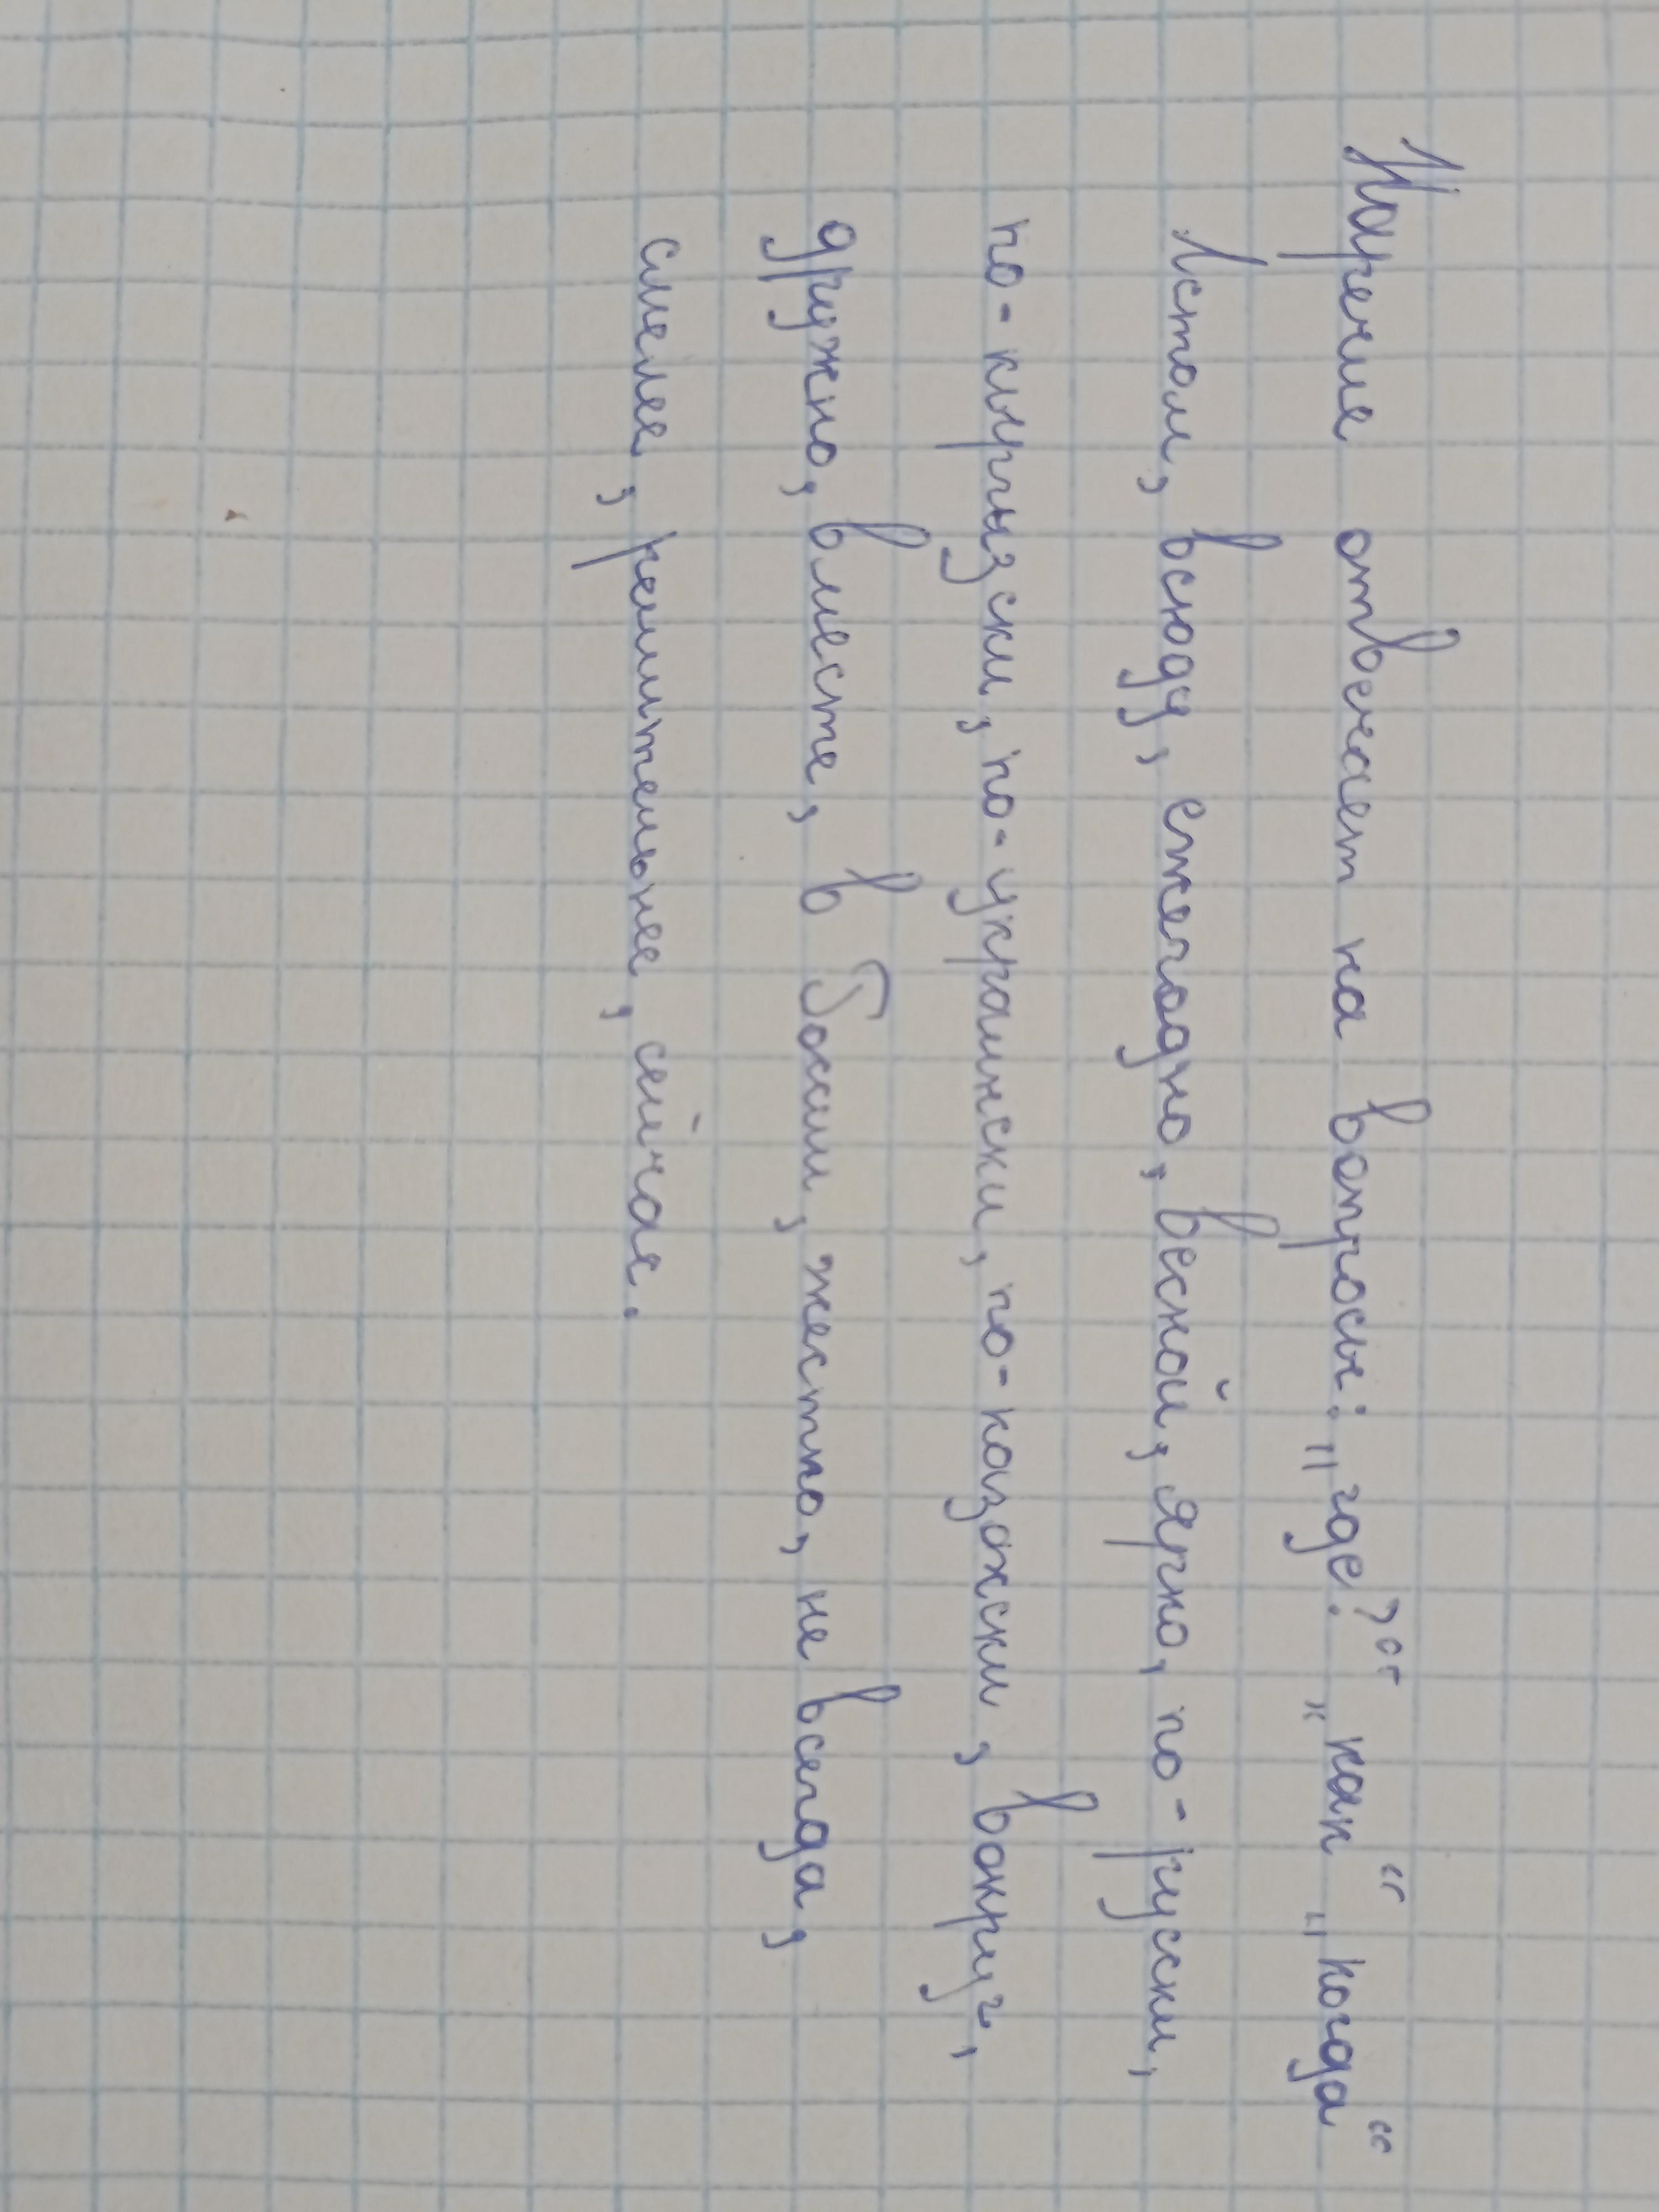 Наречие отвечает на вопросы: „где?“ „как“ „когда“
Летом, всюду, ежегодно, весной, ярко, по-русски,
по-киргызски, по-украински, по-казахски, вокруг,
дружно, вместе, в боким, жестко, не всегда,
смелее, решительнее, сейчас.